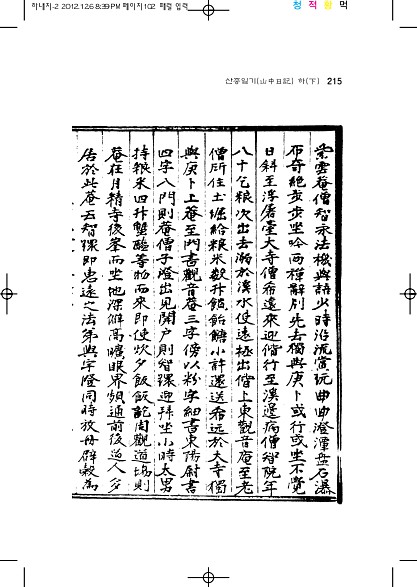 하네지-2 2012.12.6 8:39 PM 페이지102
청 적 황 먹
산중일기(山中日記) 하(下) 215
雲庵僧智永法機與語少時沿流賞玩曲曲澄潭盤石瀑
布奇絶步步坐吟兩禪辭別先去獨與庚卜或行或坐不覺
日斜至浮屠臺大寺僧希遠來迎偕行至溪邊病僧智院年
八十乞粮次出去溺於溪水使遠極出偕上東觀音庵至老
僧所住土堀給粮米數升小許還送希遠於大寺獨
與庚卜上庵至門書觀音庵三字傍以粉字細書東陽尉書
四字八門則庵僧子澄出見開戶則智迎拜坐小時太男
持粮米四升蟹醢等物而來即使炊夕飯飯訖周觀道場則
庵在月精寺後峯而坐地深僻高曠眼界頻通前後道人多
居於此庵云智即忠遠之法弟與字澄同時放冊辟穀爲